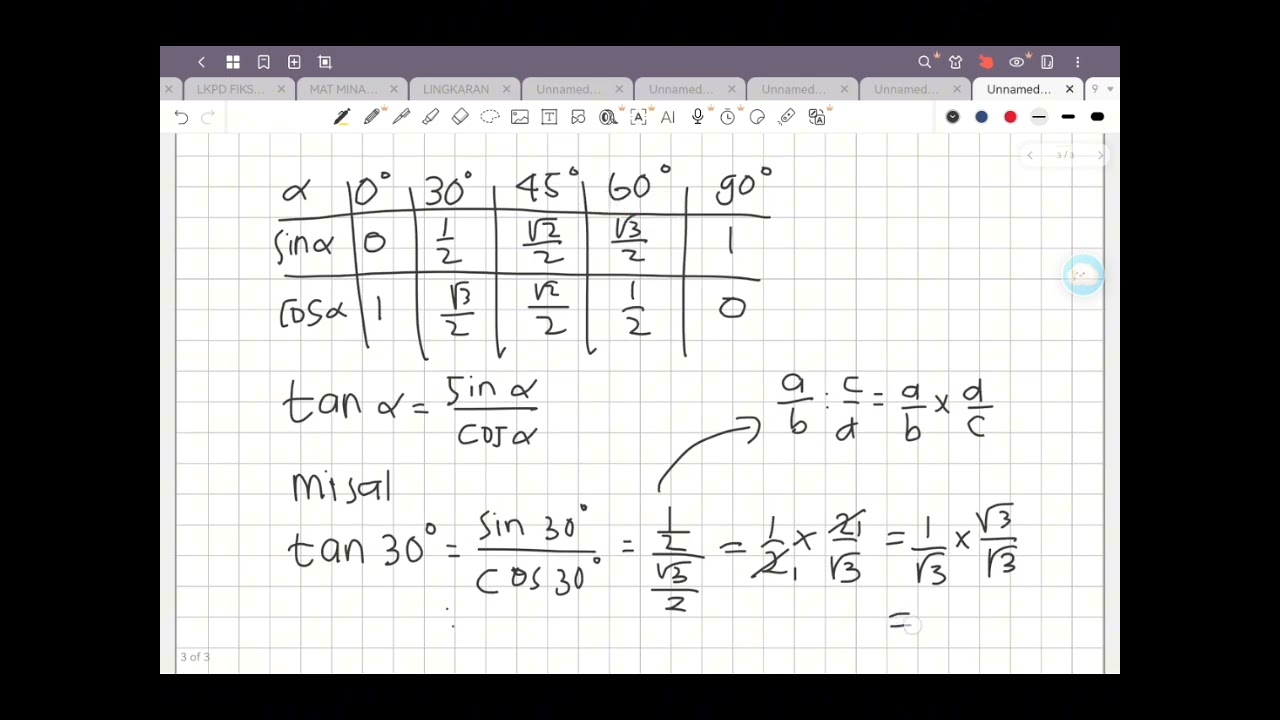 LKPD FIKS...
MAT MINA...
LINGKARAN
Unnamed...
Unnamed...
Unnamed...
Unnamed...
Unnamed...
9
AI
3/3
α 0° 30° 45° 60° 90°
sin α 0 1/2 √2/2 √3/2 1
cos α 1 √3/2 √2/2 1/2 0
tan α = sin α / cos α
a/b : c/d = a/b × d/c
misal
tan 30° = sin 30° / cos 30° = (1/2)/(√3/2) = 1/2 1 × 2 1/√3 = 1/√3 × √3/√3
=
3 of 3